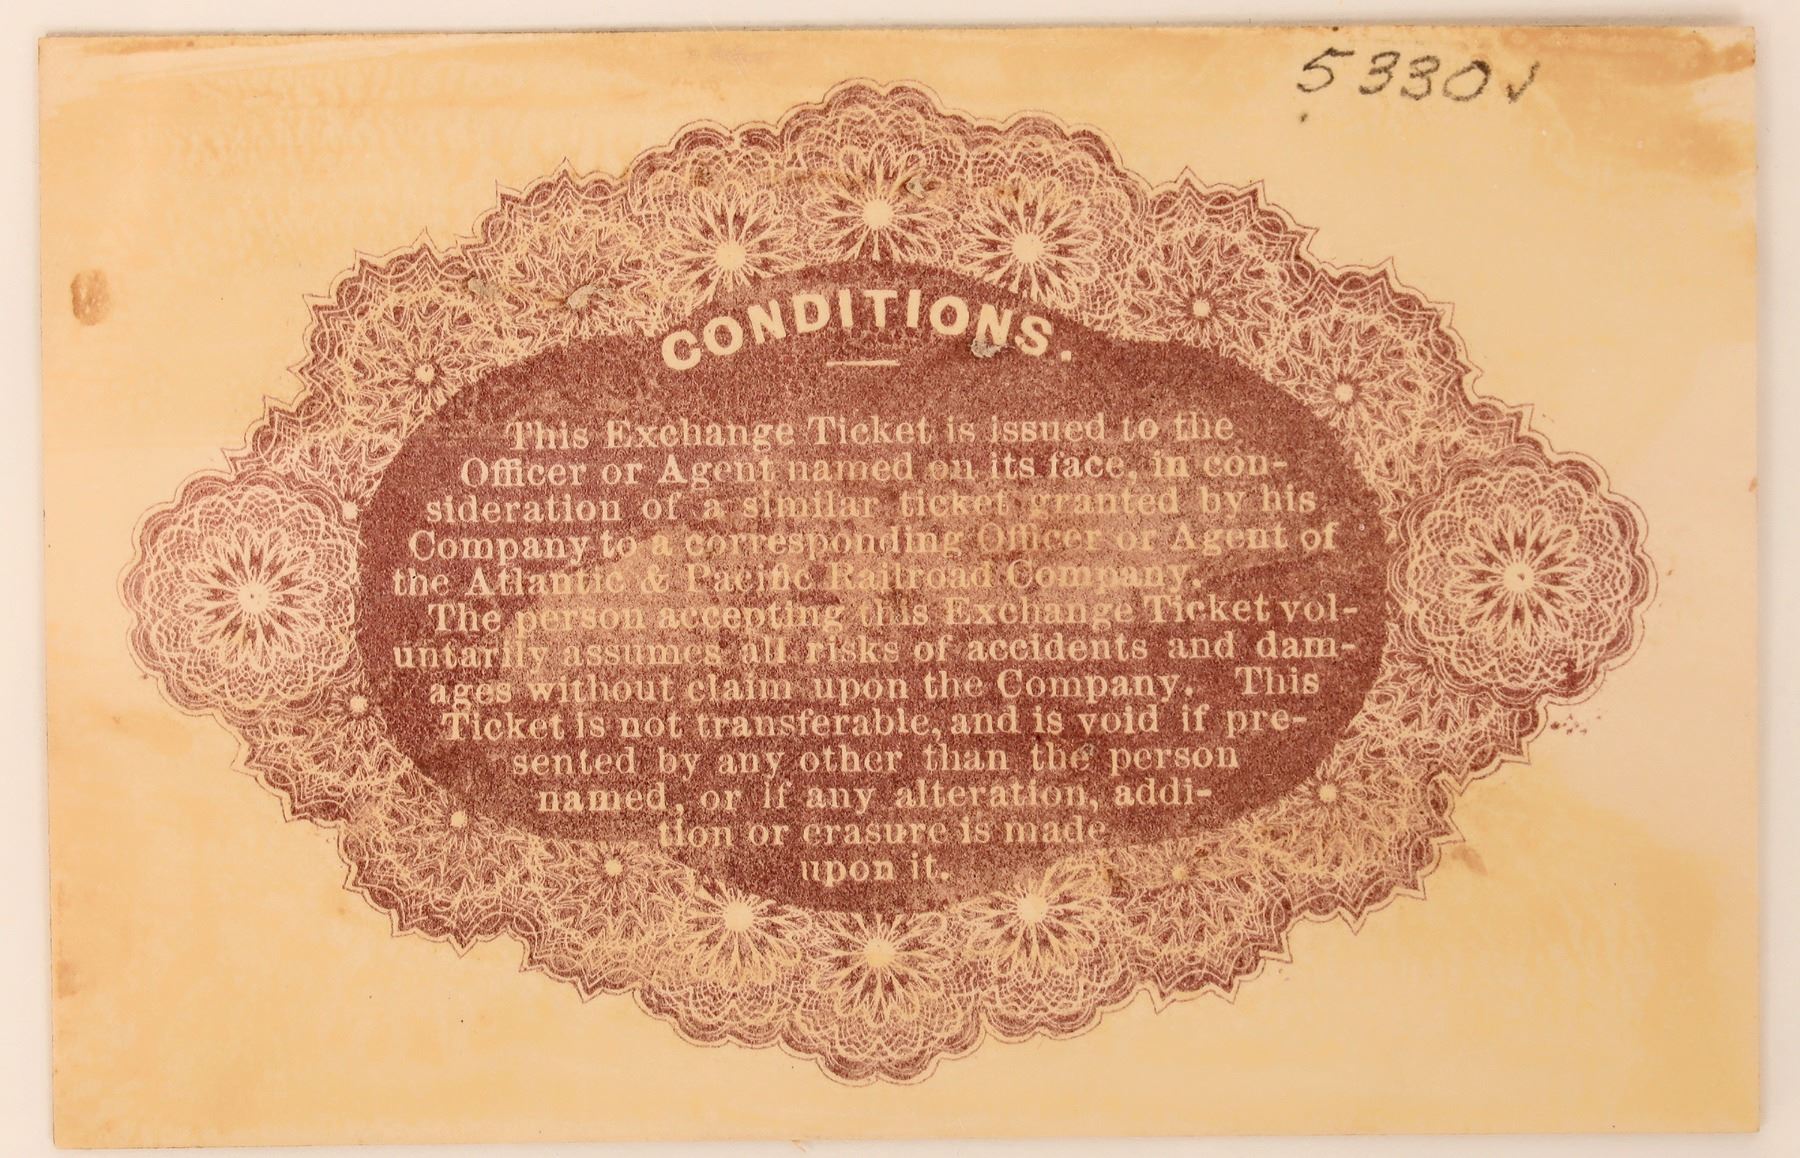 5330√
CONDITIONS.
This Exchange Ticket is issued to the
Officer or Agent named on its face, in con-
sideration of a similar ticket granted by his
Company to a corresponding Officer or Agent of
the Atlantic & Pacific Railroad Company.
The person accepting this Exchange Ticket vol-
untarily assumes all risks of accidents and dam-
ages without claim upon the Company. This
Ticket is not transferable, and is void if pre-
sented by any other than the person
named, or if any alteration, addi-
tion or erasure is made
upon it.